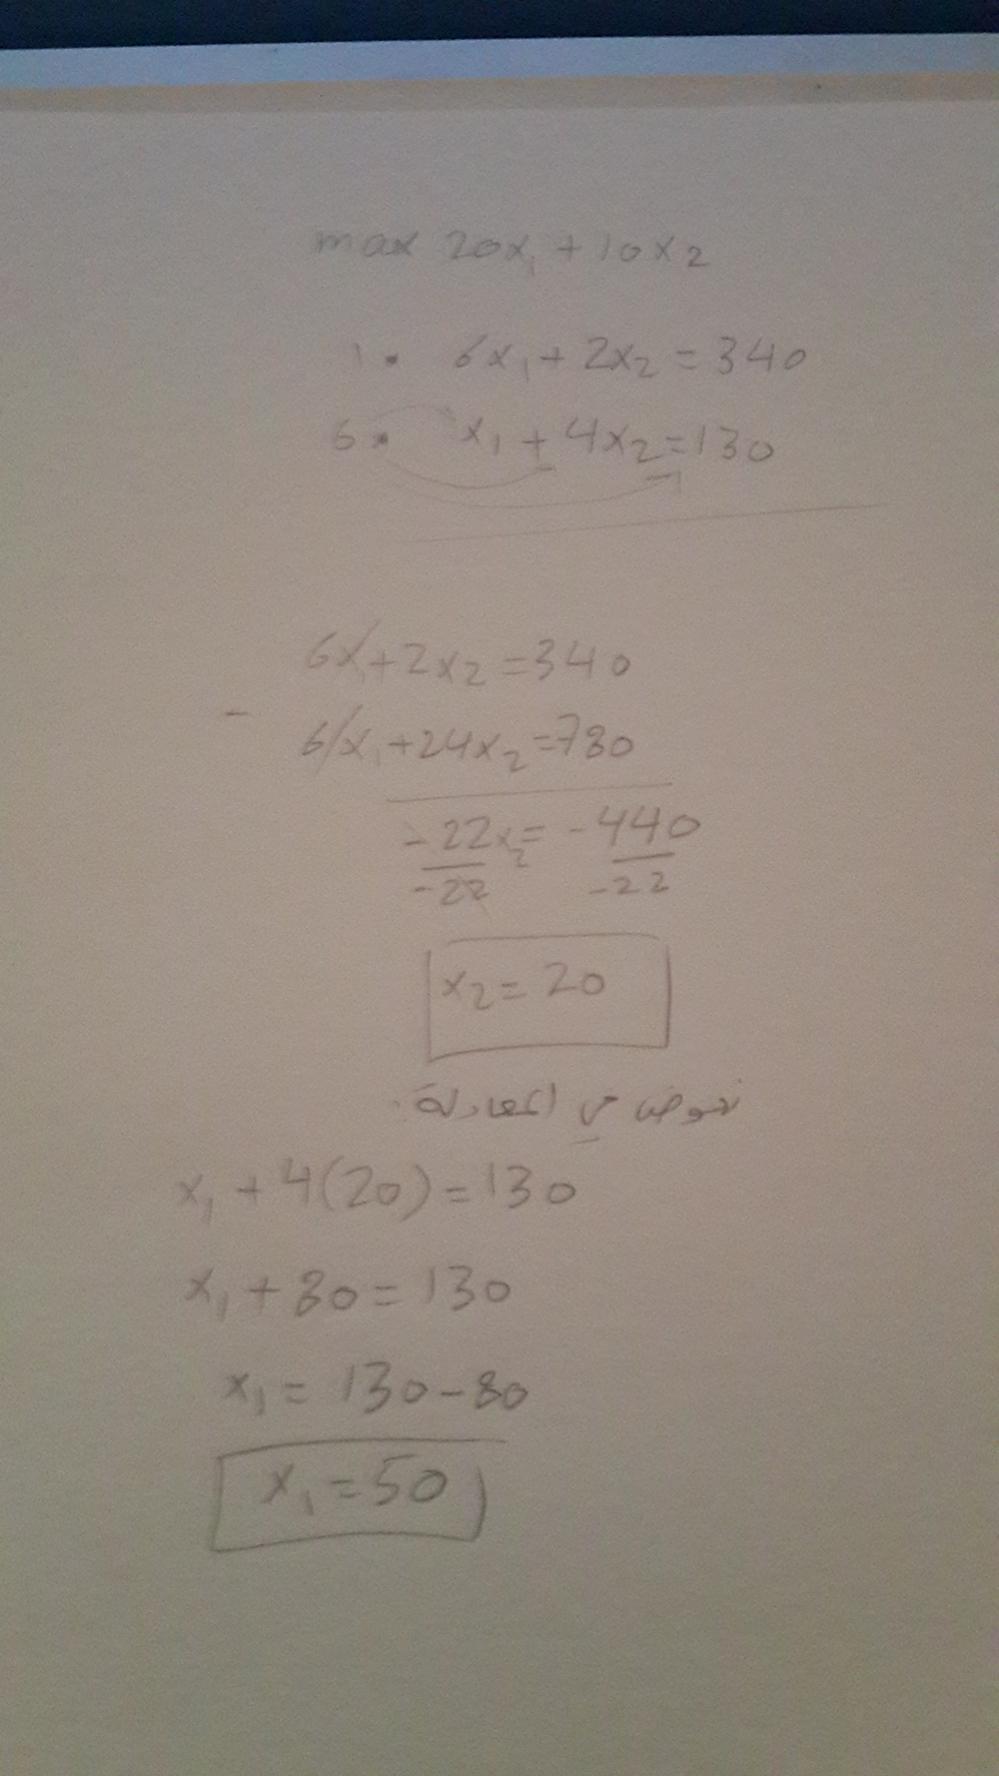 max 20x₁ + 10x₂
1. 6x₁ + 2x₂ = 340
6. x₁ + 4x₂ = 130
6x₁ + 2x₂ = 340
-
6x₁ + 24x₂ = 780
-22x₂ = -440
-22 -22
x₂ = 20
نعوض في المعادلة
x₁ + 4(20) = 130
x₁ + 80 = 130
x₁ = 130 - 80
x₁ = 50